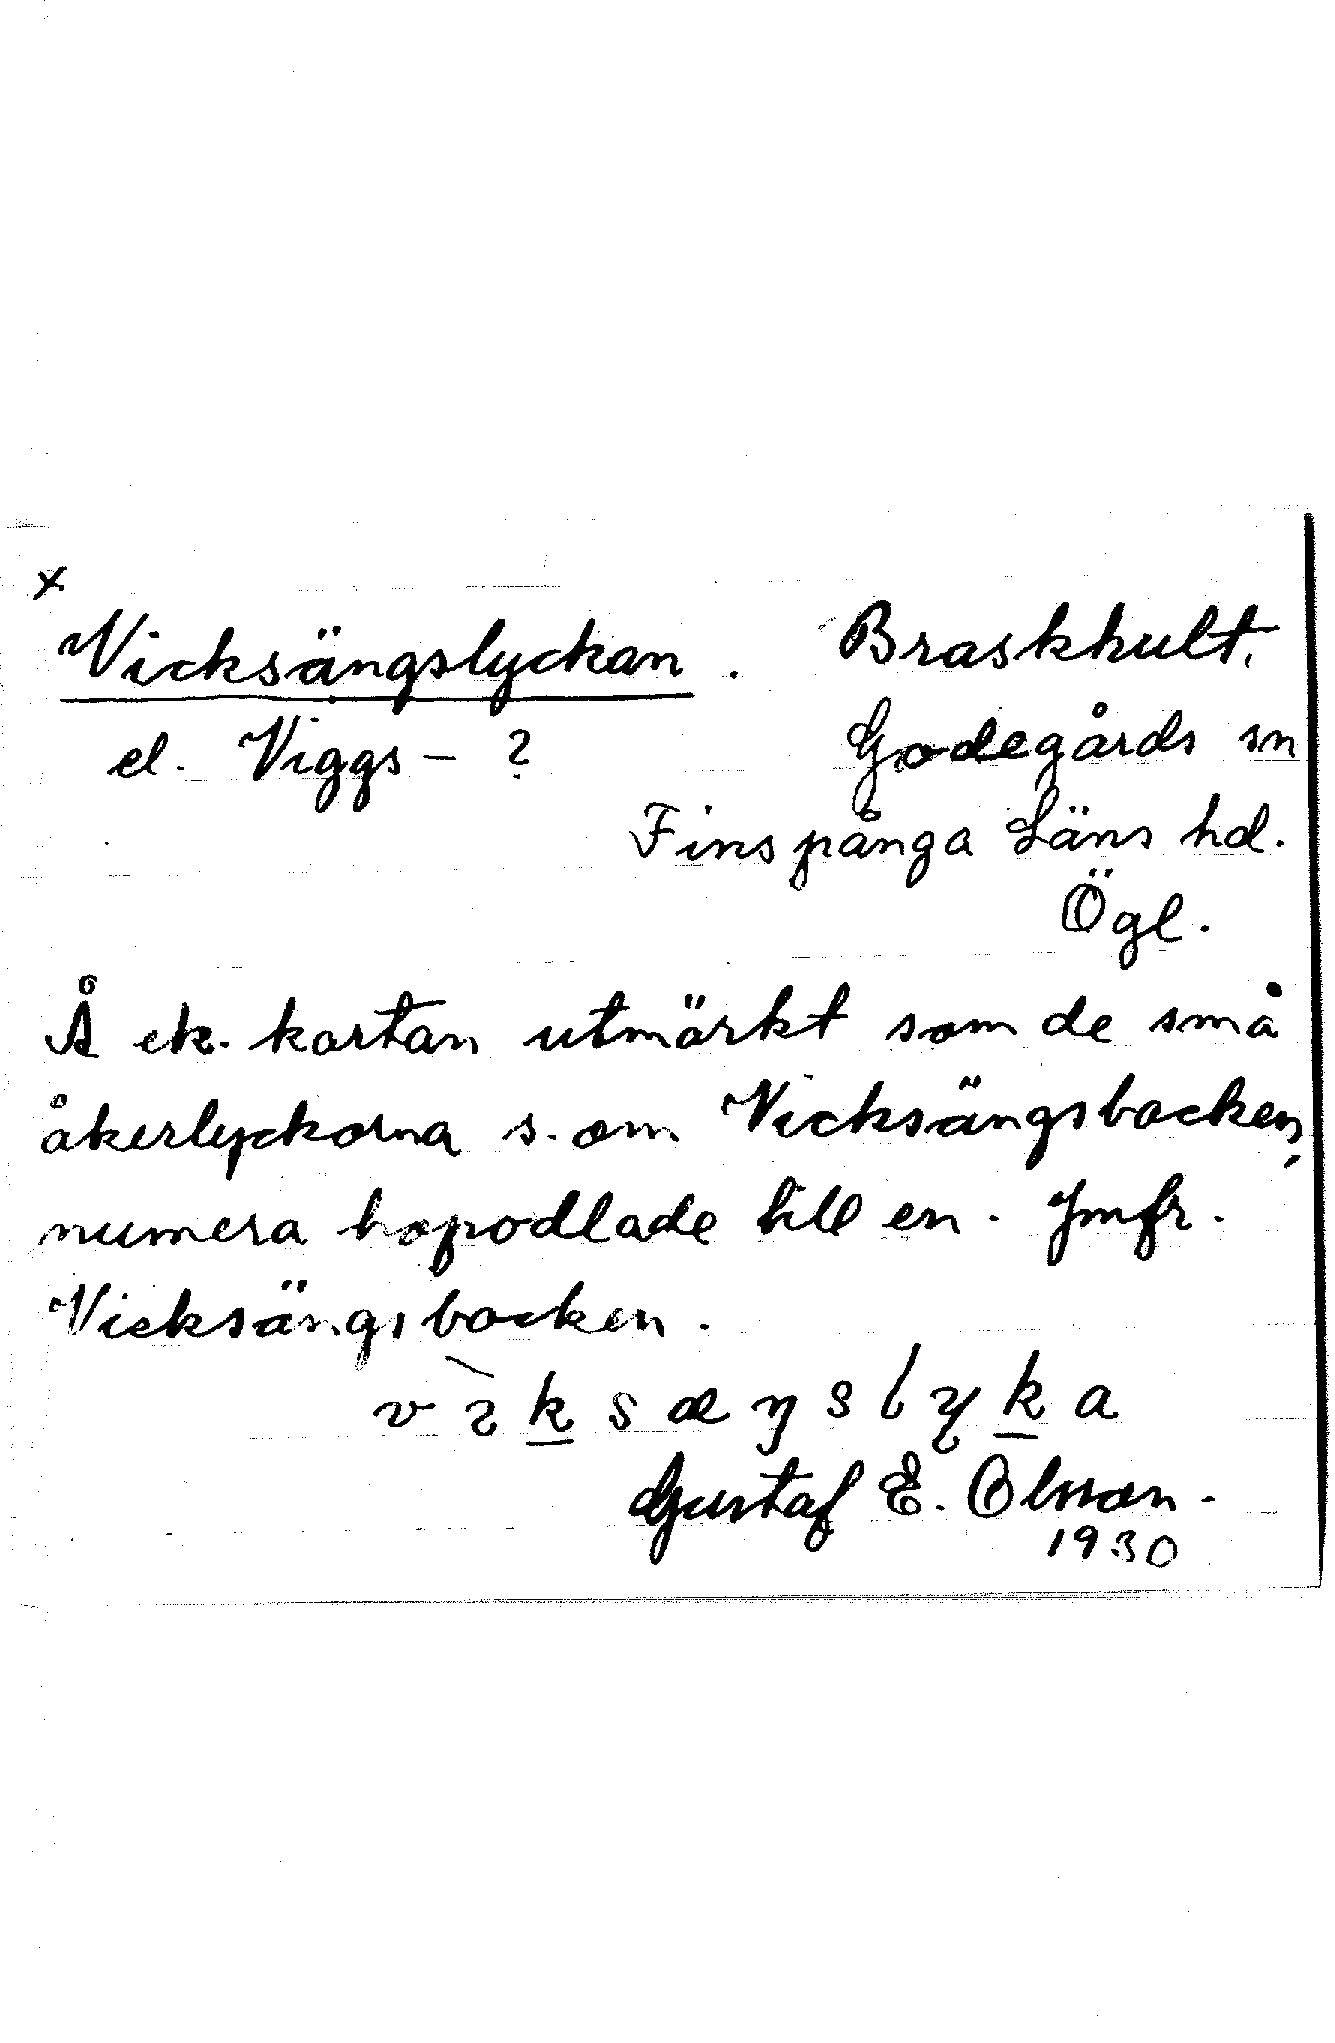 x
Vicksängslyckan. Braskhult.
el. Viggs- ? Godegårds sn
Finspånga Läns hd.
Ögl.
Å ek. kartan utmärkt som de små
åkerlyckorna s. om Vicksängsbacken,
numera hopodlade till en. Jmfr.
Vicksängsbacken.
vìksæŋslyka
Gustaf E. Olsson.
1930